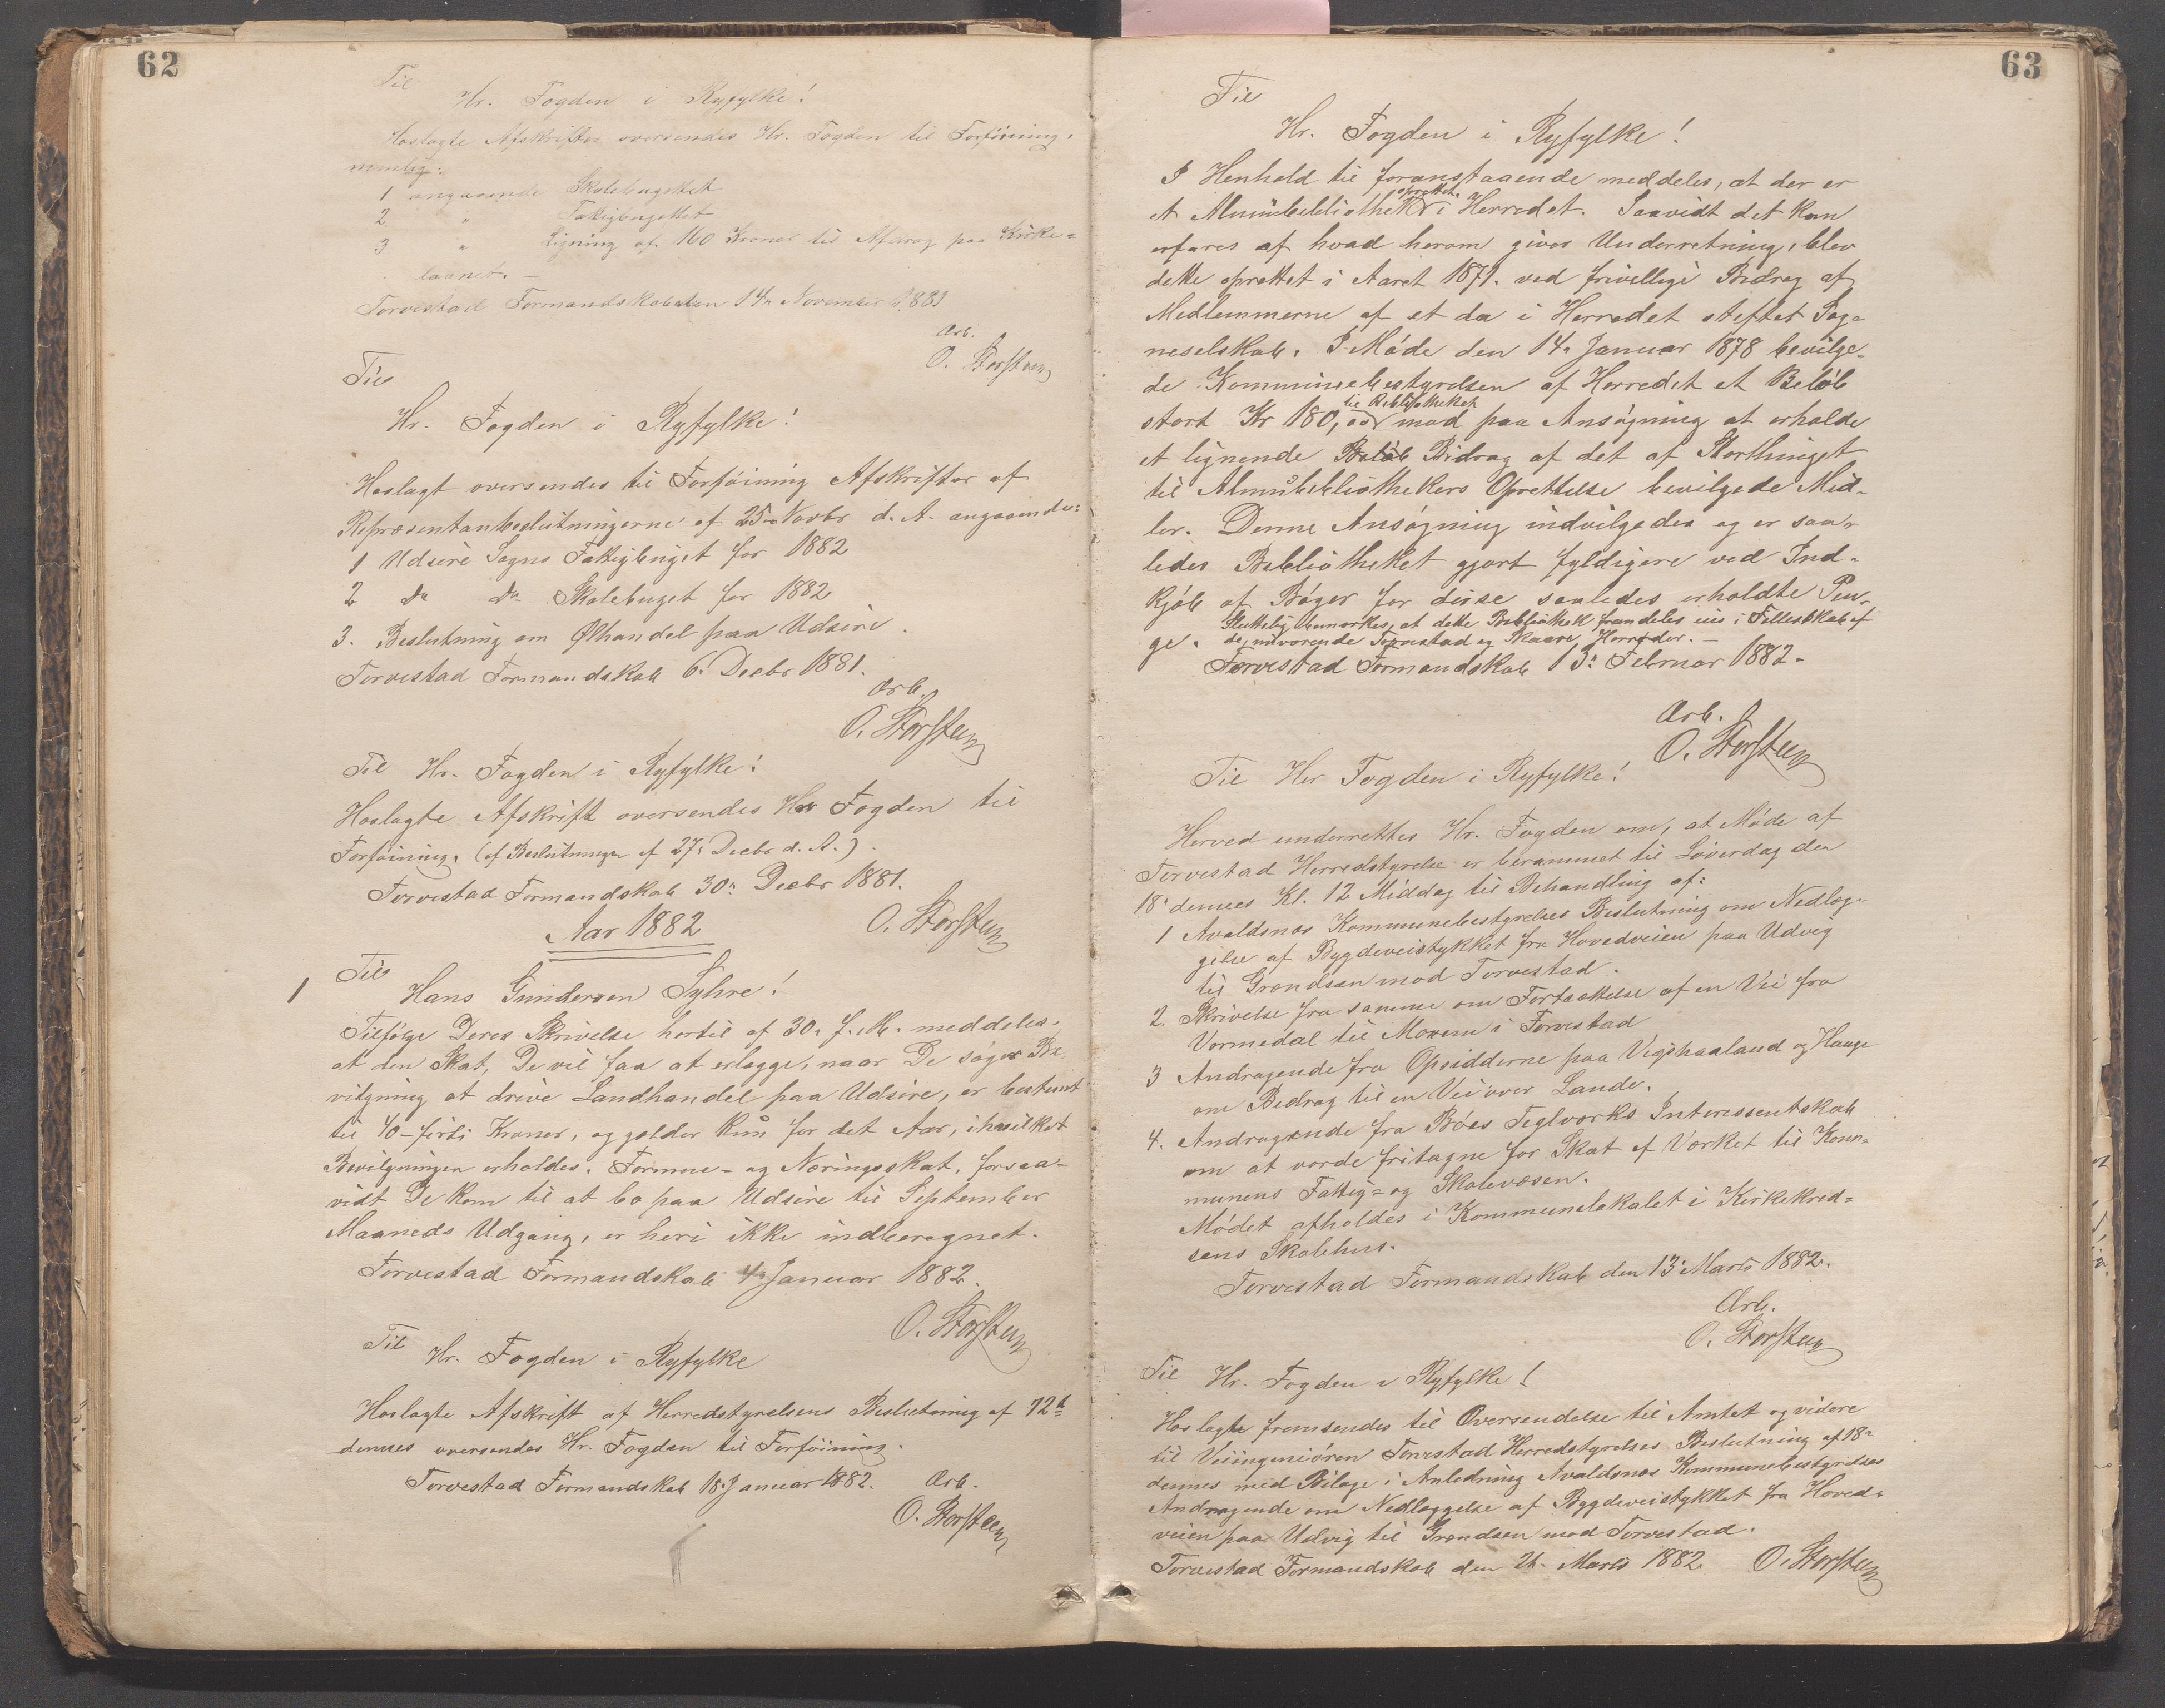 62
Til
Hr. Fogden i Ryfylke!
Hoslagte Afskrifter oversendes Hr. Fogden til Forføining,
nemlig:
1 angaaende Skolebugettet
2 " Fattigbugettet
3 " Ligning af 160 Kroner til Afdrag paa Kirke=
laanet. —
Torvestad Formandskab den 14n November 1881
Ærb.
O. Storsteen
Til
Hr. Fogden i Ryfylke!
Hoslagt oversendes til Forføining Afskrifter af
Repræsentantbeslutningerne af 25n Novbr d. A. angaaende:
1 Udsire Sogns Fattigbuget for 1882
2 do do Skolebuget for 1882
3. Beslutning om Ølhandel paa Udsire.
Torvestad Formandskab 6. Decbr 1881.
Ærb.
O. Storsteen
Til Hr. Fogden i Ryfylke!
Hoslagte Afskrift oversendes Her Fogden til
Forføining. (af Beslutninger af 27. Decbr d. A.).
Torvestad Formandskab 30n Decbr 1881.
O. Storsteen
Aar 1882
1
Til
Hans Gundersen Sylvre!
Tilfølge Deres Skrivelse hertil af 30. f. M. meddeles,
at den Skat, De vil faa at erlægge, naar De søger Be
vilgning at drive Landhandel paa Udsire, er bestemt
til 40 - førti Kroner, og gjelder kun for det Aar, i hvilket
Bevilgningen erholdes. Formue- og Næringsskat, forsaa-
vidt De kom til at bo paa Udsire til September
Maaneds Udgang, er heri ikke indberegnet.
Torvestad Formandskab 4n Januar 1882.
O. Storsteen
Til
Hr. Fogden i Ryfylke
Hoslagte Afskrift af Herredstyrelsens Beslutning af 12te
dennes oversendes Hr. Fogden til Forføining.
Torvestad Formandskab 18. Januar 1882.
Ærb.
O. Storsteen
63
Til
Hr. Fogden i Ryfylke!
I Henhold til foranstaaende meddeles, at der er
oprettet
et Almuebibliothek i Herredet. Saavidt det kan
erfares af hvad herom gives Underretning, blev
dette oprettet i Aaret 1871. ved frivillige Bidrag af
Medlemmerne af et da i Herredet stiftet Sog=
neselskab. I Møde den 14n Januar 1878 bevilge-
de Kommunebestyrelsen af Herredet et Beløb
til Bibliotheket
stort Kr 180,00 mod paa Ansøgning at erholde
et lignende Beløb Bidrag af det af Storthinget
til Almuebibliothekers Oprettelse bevilgede Mid-
ler. Denne Ansøgning indvilgedes og er saa-
ledes Bibliotheket gjort fyldigere ved Ind-
kjøb af Bøger for disse saaledes erholdte Pen-
ge. Sluttelig bemærkes, at dette Bibliothek fremdeles eies i Fellesskab af
de nuværende Torvestad og Skaare Herreder. —
Torvestad Formandskab 13. Februar 1882.
Ærb.
O. Storsteen
Til Her Fogden i Ryfylke!
Herved underrettes Hr. Fogden om, at Møde af
Torvestad Herredstyrelse er berammet til Løverdag den
18. dennes Kl. 12 Middag til Behandling af:
1 Avaldsnes Kommunebestyrelses Beslutning om Nedlæg-
gelse af Bygdeveistykket fra Hovedveien paa Udvig
til Grændsen mod Torvestad.
2. Skrivelse fra samme om Fortsættelse af en Vei fra
Vormedal til Moxem i Torvestad
3 Andragende fra Opsidderne paa Vigshaaland og Hauge
om Bidrag til en Vei over Lande.
4. Andragende fra Bøes Teglværks Interessentskab
om at vorde fritagne for Skat af Værket til Kom-
munens Fattig= og Skolevæsen.
Mødet afholdes i Kommunelokalet i Kirkekred=
sens Skolehus.
Torvestad Formandskab den 13. Marts 1882.
Ærb.
O. Storsteen
Til Hr. Fogden i Ryfylke!
Hoslagte fremsendes til Oversendelse til Amtet og videre
til Veiingeniøren Torvestad Herredstyrelses Beslutning af 18n
dennes med Bilage i Anledning Avaldsnes Kommunebestyrelses
Andragende om Nedlæggelse af Byggdeveistykket fra Hoved-
veien paa Udvig til Grændsen mod Torvestad.
Torvestad Formandskab den 21. Marts 1882 O. Storsteen